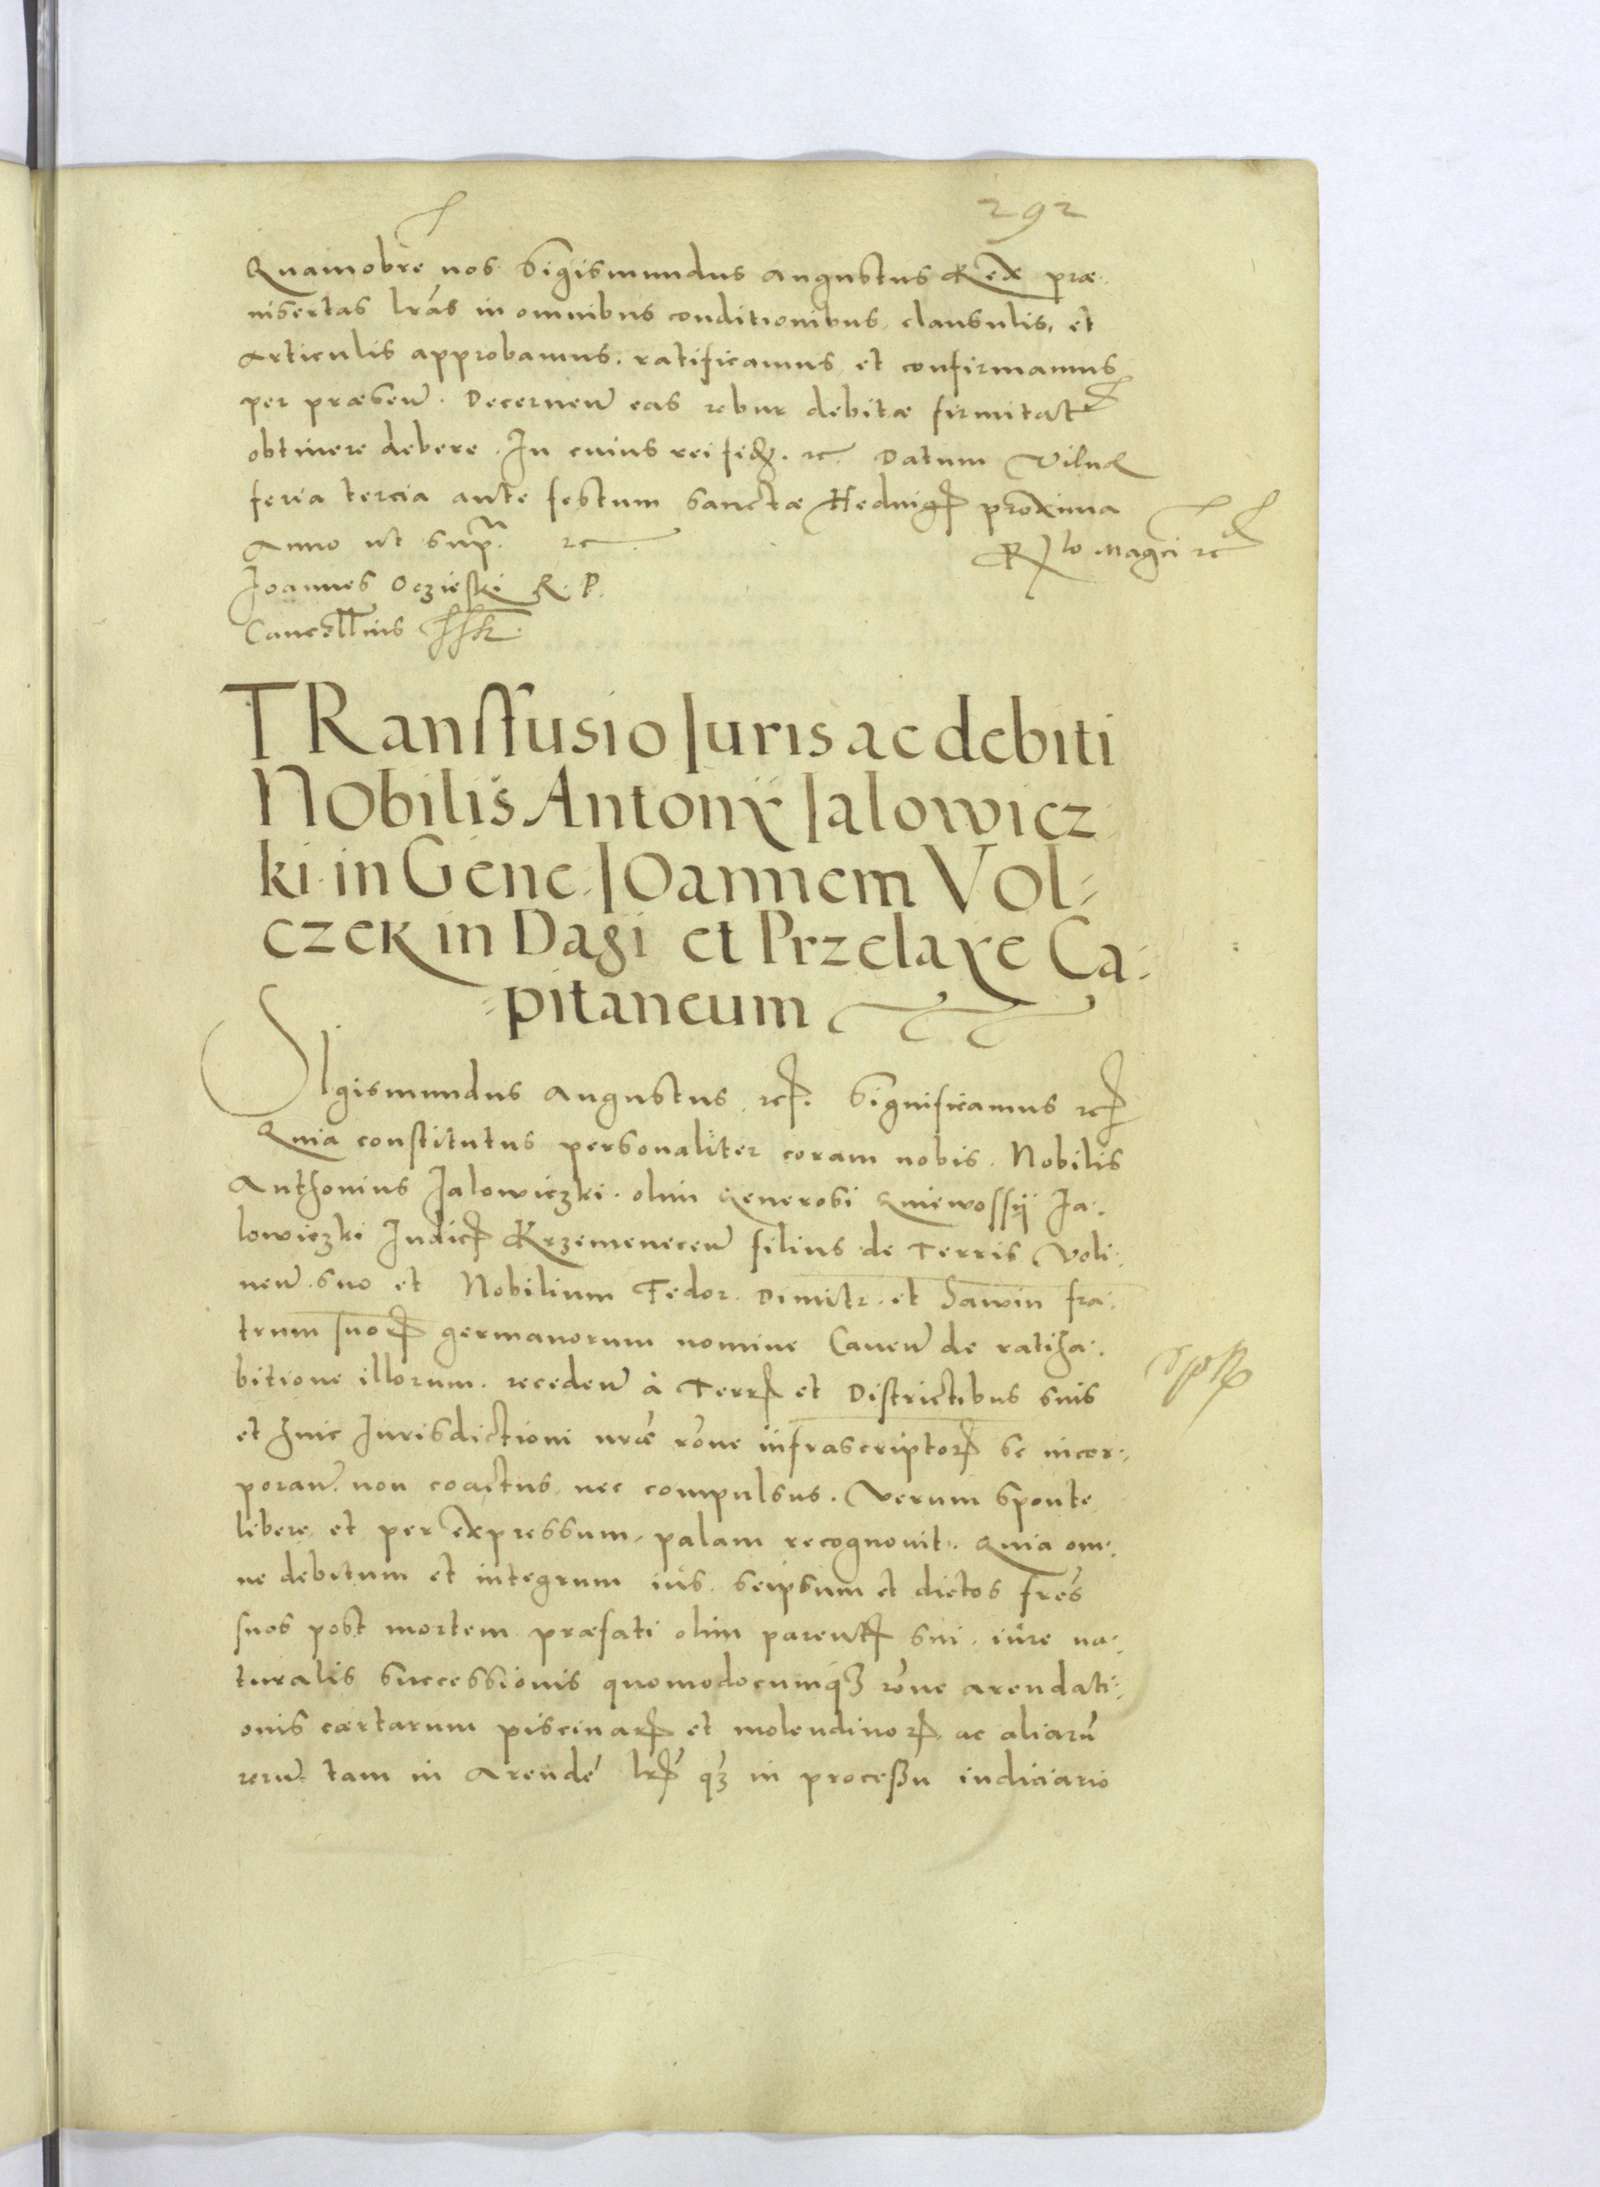 292
Quamobrē nos Sigismundus Augustus Rex præ
insertas lrās in omnibus conditionibus, clausulis, et
articulis approbamus, ratificamus et confirmamus
per præsen̄. Decernen̄ eas robur debitæ firmitat
obtinere debere. In cuius rei fidē. rc. Datum Vilnæ
feria tercia ante festum Sanctæ Hedvigis proxima
Anno ut sup. rc
Rlo Magci rc
Joannes Oczieski R. P.
Cancellrius sst.
TRansfusio Juris ac debiti
NObilis Antonij Jalowicz
ki in Gene. JOannem VOl-
czek in Dagi et Przelaye Ca-
pitaneum
SIgismundus Augustus rc. Significamus rc
Quia constitutus personaliter coram nobis. Nobilis
Anthonius Jalowiczki. olim Generosi Gniewossij Ja-
lowiczki Judicis Krzemenecen̄ filius de Terris Voli-
nen̄. suo et Nobilium Fedor. Dimitr. et Sawin fra-
trum suor germanorum nomine Caven̄ de ratiha-
bitione illorum. receden̄ à Terris et Districtibus suis
et huic Jurisdictioni nrǣ rōne infrascriptor se incor-
poran̄. non coactus nec compulsus. Verum sponte
libere et per expressum, palam recognovit. Quia om-
ne debitum et integrum ius. seipsum et dictos frēs
suos post mortem præfati olim parentis sui. iure na-
turalis successionis quomodocumq; rōne arendati-
onis cærtarum piscinar et molendinor ac aliarū
rerū. tam in Arendē lris q; in processu iudiciario